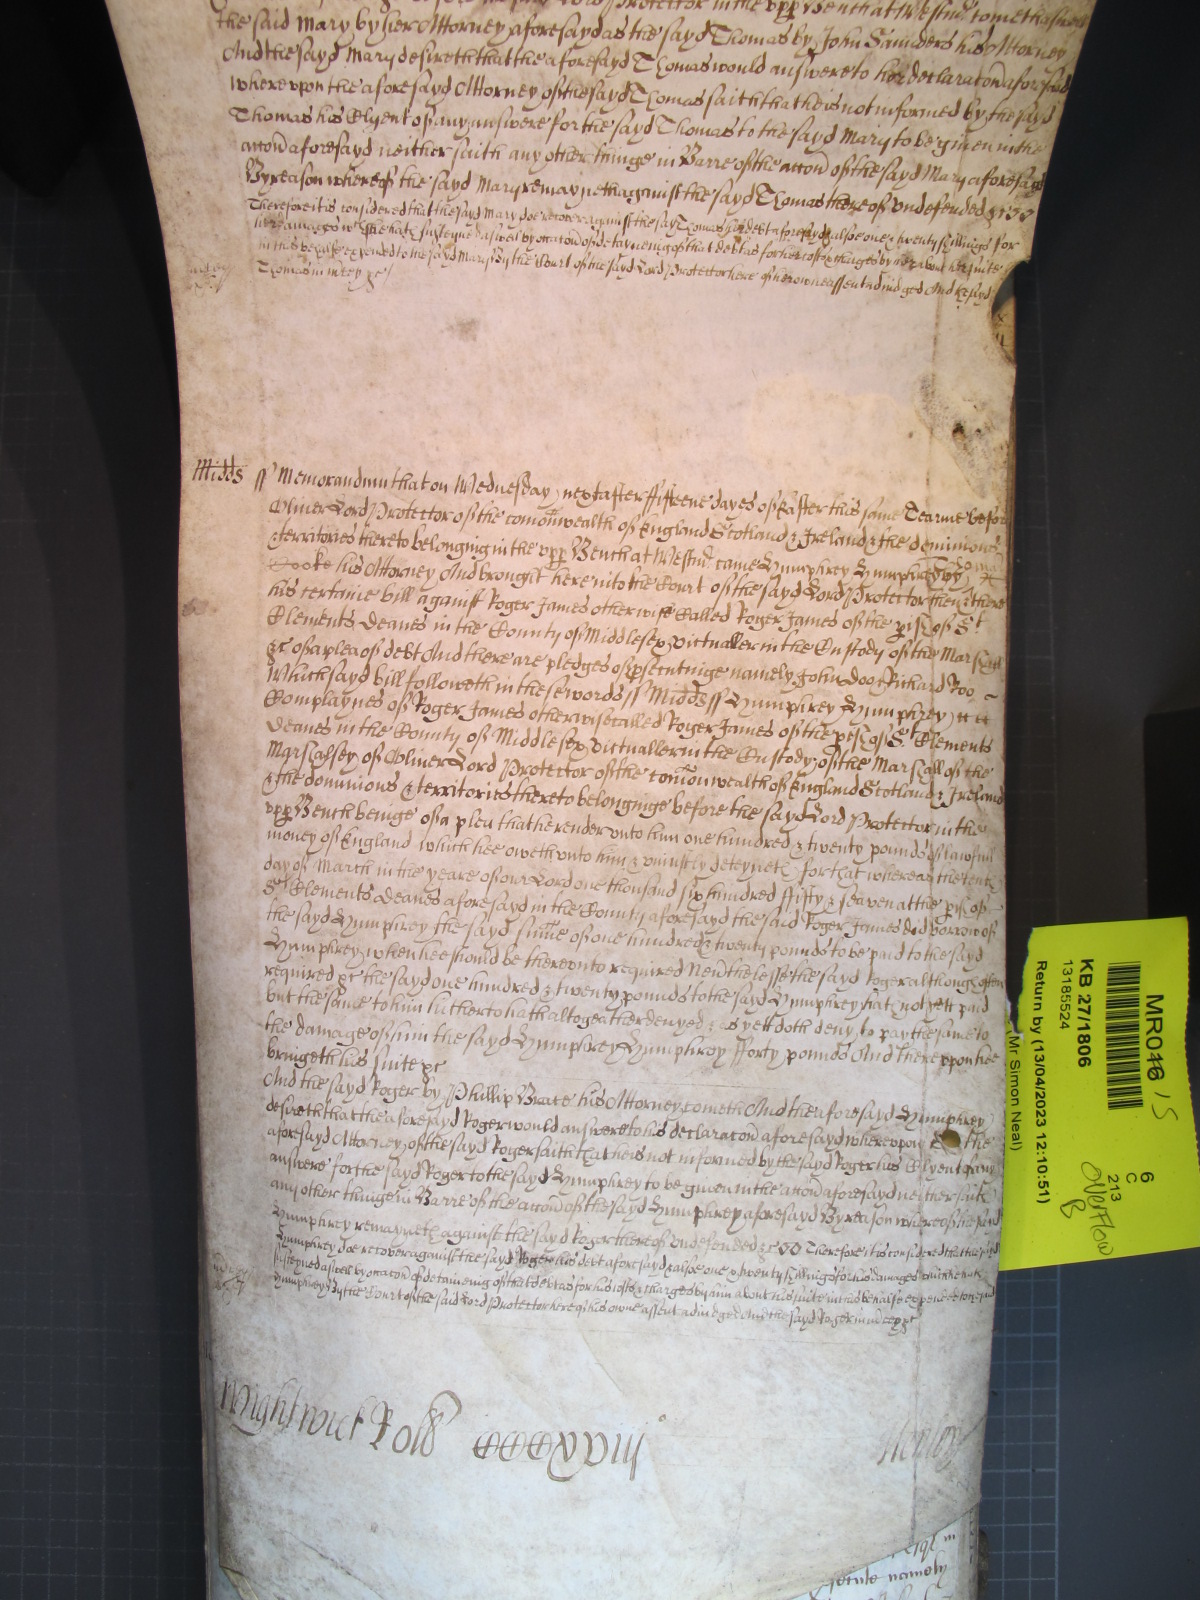 the said Mary by her Attorney aforesayd as the sayd Thomas by John Saunders his Attorney
And the sayd Mary desireth that the aforesayd Thomas would answere to her declaracon aforesaid
whereupon the aforesayd Attorney of the sayd Thomas saith that he is not informed by the sayd
Thomas his Clyent of any answere for the sayd Thomas to the sayd Mary to be given in the
accon aforesayd neither saith any other thinge in Barre of the accon of the sayd Mary aforesayd
By reason whereof the sayd Mary remayneth against the sayd Thomas thereof undefended &c
Therefore it is considered that the sayd Mary doe recover against the sayd Thomas her debt aforesayd & alsoe one & twenty shillings for
her damages wch she hath susteyned aswell by occacon of deteyneing of that debt as for her costs & charges by her about her suite
in this behalfe expended to the sayd Mary by the Court of the sayd Lord Protector here of her owne assent adiudged And the sayd
Thomas in mercy &c
Midds ss Memorandum that on Wednesday next after fifteene dayes of Easter this same Tearme before
Oliver Lord Protector of the comonwealth of England Scotland & Ireland & the dominions
& territories thereto belonging in the upp Bench at Westmr came Humphrey Humphrey by Thomas
Cooke his Attorney And brought here into the Court of the sayd Lord Protector then & there
his certaine bill against Roger James otherwise Called Roger James of the pish of St
Clements Deanes in the County of Middlesex victualler in the Custody of the Marshall
&c of a plea of debt And there are pledges of psecutinge namely John Doo & Richard Roo
Which sayd bill followeth in these words ss Midds ss Humphrey Humphrey
Complaynes of Roger James otherwise called Roger James of the pish of St Clements
Deanes in the County of Middlesex victualler in the Custody of the Marshall of the
Marshalsey of Oliver Lord Protector of the comonwealth of England Scotland & Ireland
& the dominions & territories thereto belonginge before the sayd Lord Protector in the
upp Bench beinge of a plea that he render unto him one hundred & twenty pounds of lawfull
money of England which hee oweth unto him & uniustly deteyneth for that whereas the tenth
day of March in the yeare of our Lord one thousand six hundred fifty & seaven at the pish of
St Clements Deanes aforesayd in the County aforesayd the said Roger James did borrow of
the sayd Humphrey the sayd summe of one hundred & twenty pounds to be paid to the sayd
Humphrey when hee should be thereunto required Neverthelesse the sayd Roger although often
required &c the sayd one hundred & twenty pounds to the sayd Humphrey hath not yett paid
but the same to him hitherto hath altogeather denyed & as yett doth deny to pay the same to
the damage of him the sayd Humphrey Humphrey fforty pounds And thereupon hee
bringeth his suite &c
And the sayd Roger by Phillip Brace his Attorney cometh And the aforesayd Humphrey
desireth that the aforesayd Roger would answere to his declaracon aforesayd whereupon the
aforesayd Attorney of the sayd Roger saith that he is not informed by the sayd Roger his Clyent of any
answere for the sayd Roger to the sayd Humphrey to be given in the accon aforesayd neither saith
any other thinge in Barre of the accon of the sayd Humphrey aforesayd By reason whereof the sayd
Humphrey remayneth against the sayd Roger thereof undefended &c Therefore it is considered that the sayd
Humphrey doe recover against the sayd Roger his debt aforesayd & alsoe one & twenty shillings for his damages which he hath
susteyned aswell by occacon of deteineing of that debt as for his costs & charges by him about his suite in this behalfe expended to the sayd
Humphrey By the Court of the said Lord Protector here of his owne assent adiudged And the sayd Roger in mercy &c
Wightwick Roll CCCXVIII
Henley
MR046 15
KB 27/1806
13185524
Return by (13/04/2023 12:10:51)
(Mr Simon Neal)
6
C
213
Overflow
B